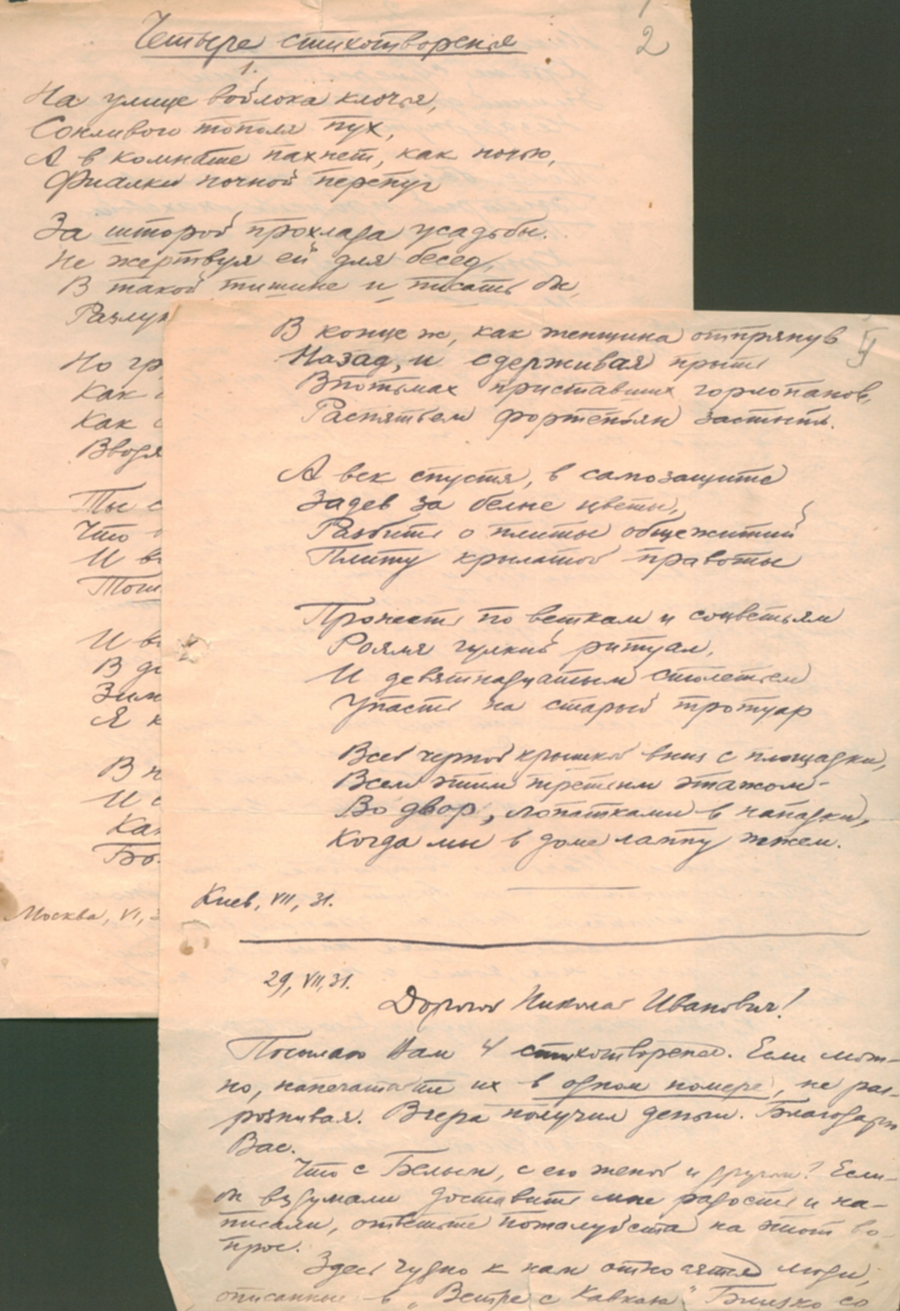 2
Четыре стихотворенья
1.
На улице войлока клочья,
Сонливого тополя пух,
А в комнате пахнет, как ночью,
Фиалки ночной перепуг
За шторой прохлада усадьбы.
Не жертвуя ей для бесед,
В такой тишине и писать бы,
Разлуч
Но гр
Как
Как
Вводя
Ты с
Что
И в
Тогд
И в
В
Зим
Я к
В н
И с
Как
Бы
Москва, VI,
В конце ж, как женщина отпрянув
Назад, и сдерживая прыть
Впотьмах приставших горлопанов,
Распятьем фортепьян застыть.
А век спустя, в самозащите
Задев за белые цветы,
Разбить о плиты общежитий
Плиту крылатой правоты
Прочесть по веткам и соцветьям
Рояля гулкий ритуал,
И девятнадцатым столетьем
Упасть на старый тротуар
Всей черной крышкой вниз с площадки,
Всем этим третьим этажом-
Во двор, лопатками в нападки,
Когда мы в доме лампу жжем.
Киев, VII, 31.
29, VII, 31.
Дорогой Николай Иванович!
Посылаю Вам 4 стихотворенья. Если мож-
но, напечатайте их в одном номере, не рас-
розливая. Вчера получил деньги. Благодарю
Вас.
Что с Белым, с его женой и другом? Если-
б вздумали доставить мне радость и на-
писали, ответьте пожалуйста на этот во-
прос.
Здесь чудно к нам относятся люди,
описанные в "Встрече с Кавказом" Близко со